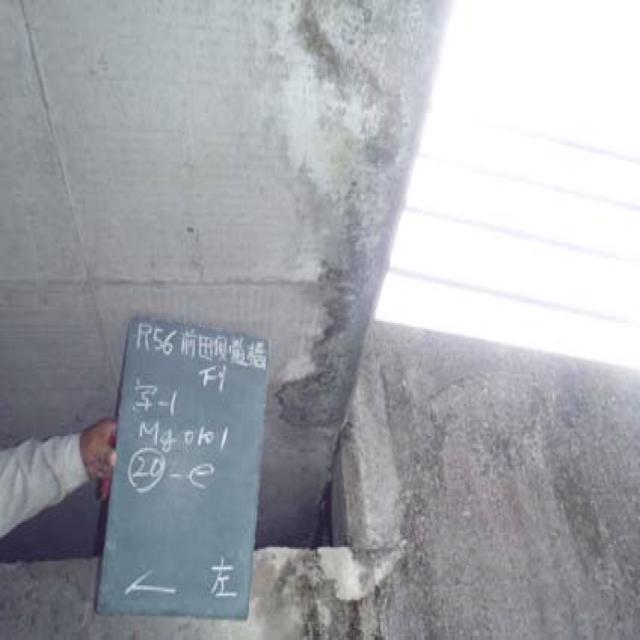 R56 前田側道橋
写-1
Mg0101
⑳-e
左